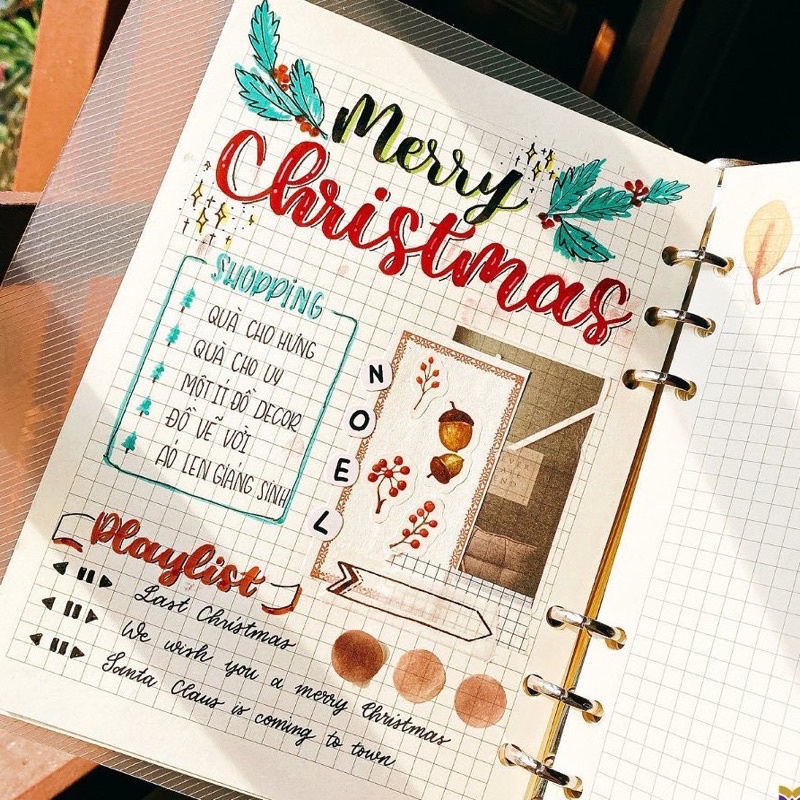 Merry
Christmas
SHOPPING
QUÀ CHO HƯNG
QUÀ CHO UY
MỘT ÍT ĐỒ DECOR
ĐỒ VẼ VỜI
ÁO LEN GIÁNG SINH
NOEL
Playlist
Last Christmas
We wish you a merry Christmas
Santa Claus is coming to town